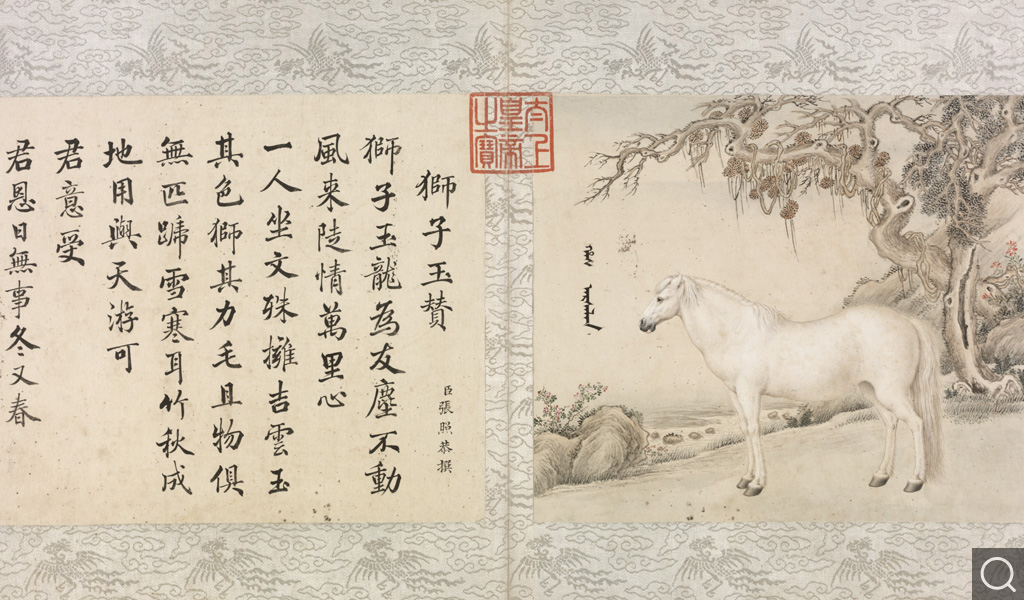 太上
皇帝
之寶
獅子玉賛
臣張照恭撰
獅子玉龍為友塵不動
風来陡情萬里心
一人坐文殊擁吉雲玉
其色獅其力毛且物俱
無匹蹄雪寒耳竹秋成
地用與天游可
君意受
君恩日無事冬又春